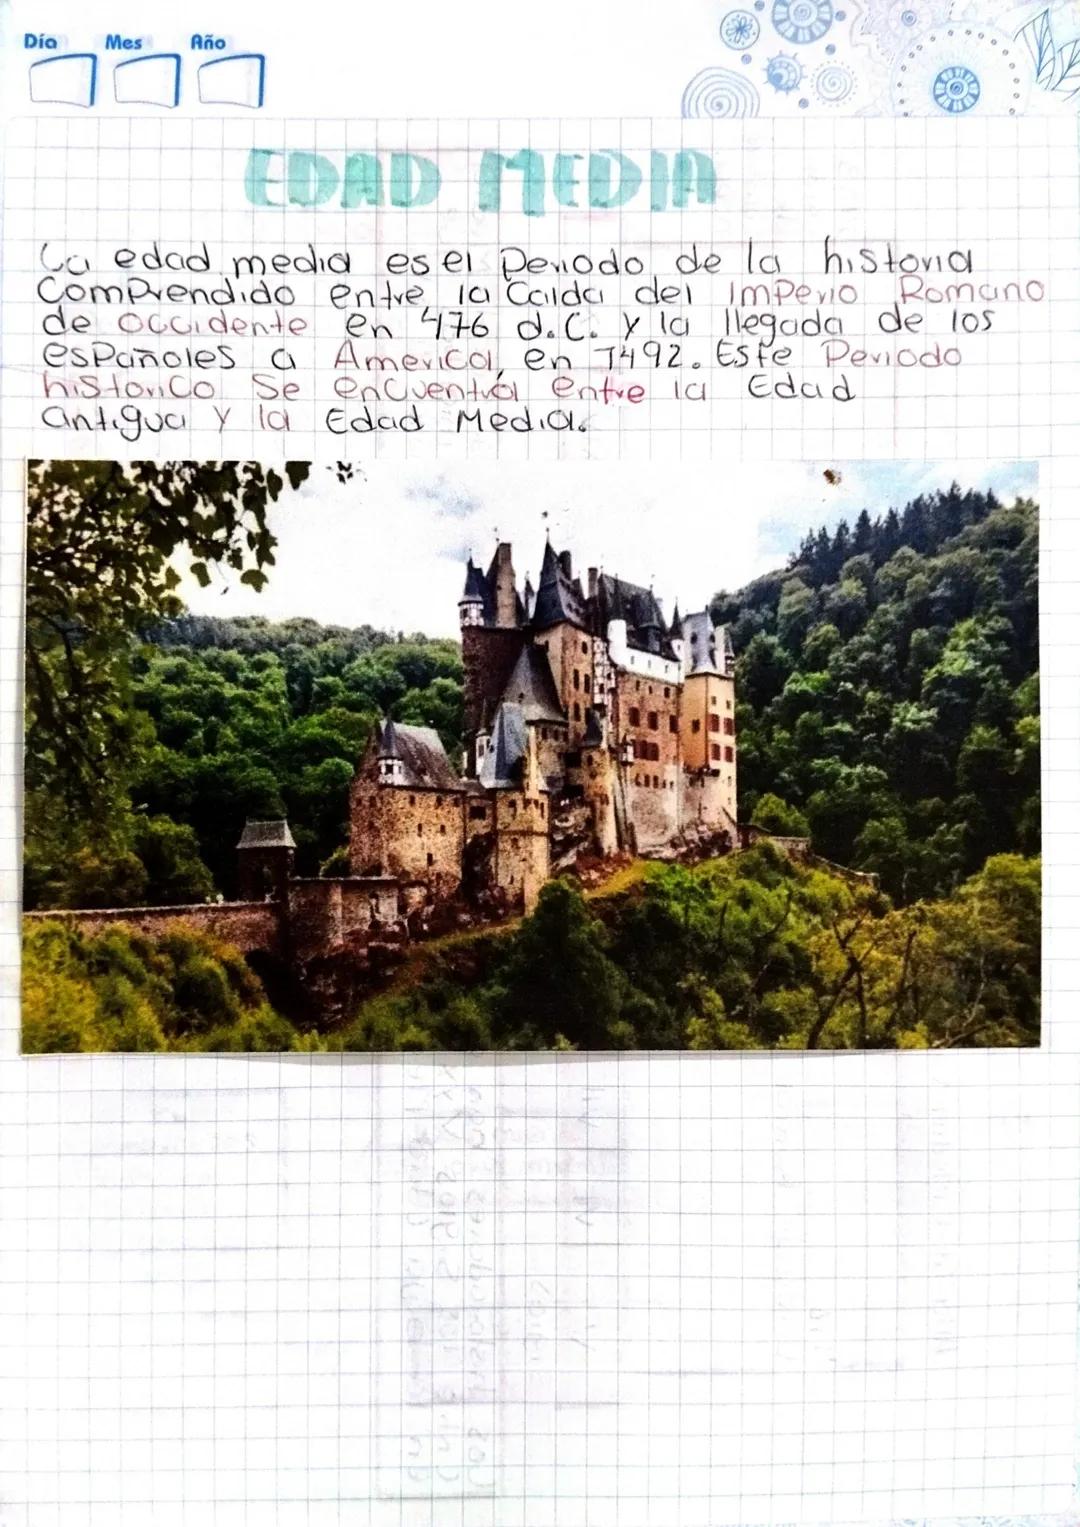 Día Mes Año
EDAD MEDIA
La edad media es el Periodo de la historia
Comprendido entre la Caida del Imperio Romano
de Occidente en 476 d.C. y la llegada de los
españoles a America, en 1492. Este Periodo
historico se encuentra entre la Edad
antigua y la Edad Media.